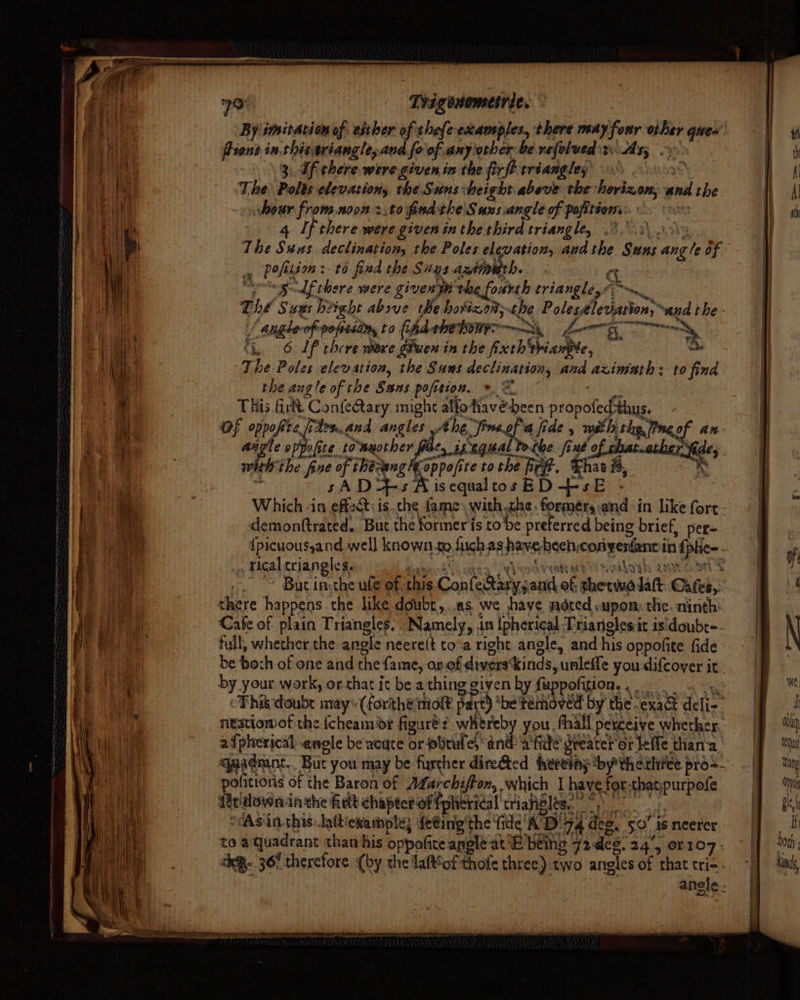 70 Trigonometrie.
By imitation of either of these examples, there may four other ques-
stions in this triangle, and so of any other be resolved: As,
3. If there were given in the first triangle,
The Poles elevation, the Suns height above the horizon, and the
hour from noon: to find the Suns angle of position.
4 If there were given in the third triangle,
The Suns declination, the Poles elevation, and the Suns angle of
position: to find the Suns azimuth.
5 If there were given in the fourth triangle,
The Suns height above the horizon, the Poles elevation, and the
angle of position, to find the hour.
6 If there were given in the sixth triangle,
The Poles elevation, the Suns declination, and azimuth: to find
the angle of the Suns position.
This first Consectary might also have been proposed thus.
Of opposite sides, and angles, the sine of a side, with the sine of an
angle opposite to another side, is equal to the sine of that other side,
with the sine of the angle opposite to the first. That is,
s A D + s A is equal to s B D + s E
Which in effect is the same with the former, and in like sort
demonstrated. But the former is to be preferred being brief, per-
spicuous, and well known to such as have been conversant in sphe-
rical triangles.
But in the use of this Consectary, and of the two last Cases,
there happens the like doubt, as we have noted upon the ninth
Case of plain Triangles. Namely, in spherical Triangles it is doubt-
full, whether the angle neerest to a right angle, and his opposite side
be both of one and the same, or of divers kinds, unlesse you discover it
by your work, or that it be a thing given by supposition.
This doubt may (for the most part) be removed by the exact deli-
neation of the scheam or figure: whereby you shall perceive whether
a spherical angle be acute or obtuse, and a side greater or lesse than a
Quadrant. But you may be further directed herein, by the three pro-
positions of the Baron of Marchiston, which I have for that purpose
set down in the first chapter of spherical triangles.
As in this last example; seeing the side A D 74 deg. 50' is neerer
to a Quadrant than his opposite angle at E being 72 deg. 24', or 107
deg. 36' therefore (by the last of those three) two angles of that tri-
angle